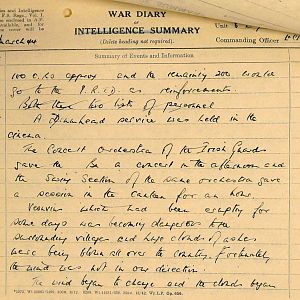 and Intelligence
P.S. Regs., Vol. I.
WAR DIARY
OF
INTELLIGENCE SUMMARY
(Delete heading not required).
Commanding Officer
March 44
Summary of Events and Information
100 O.Rs approx and the remaining 200 would
go to the I.R.T.D. as reinforcements.
Both these two lots of personnel
A Drumhead service was held in the
cinema.
The Concert orchestra of the Irish Guards
gave the Bn a concert in the afternoon and
the Swing Section of the same orchestra gave
a session in the canteen for an hour.
Vesuvius which had been erupting for
some days was becoming dangerous to the
surrounding villages and huge clouds of ashes
were being blown all over the country. Fortunately
the wind was not in our direction.
The wind began to change and the clouds began